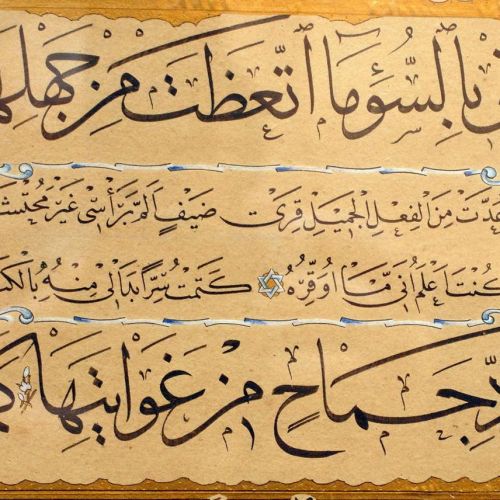 بِالسُّوءِ مَا اتَّعَظَتْ مِنْ جَهْلِهَا
عَدَّتْ مِنَ الْفِعْلِ الْجَمِيلِ قِرَى ضَيْفٍ اَلَمَّ بِرَأْسِى غَيْرَ مُحْتَشِ
كُنْتُ اَعْلَمُ اَنِّى مَا اُوَقِّرُهُ كَتَمْتُ سِرًّا بَدَالِى مِنْهُ بِالْكَ
دِّ جِمَاحٍ مِنْ غَوَايَتِهَا كَ